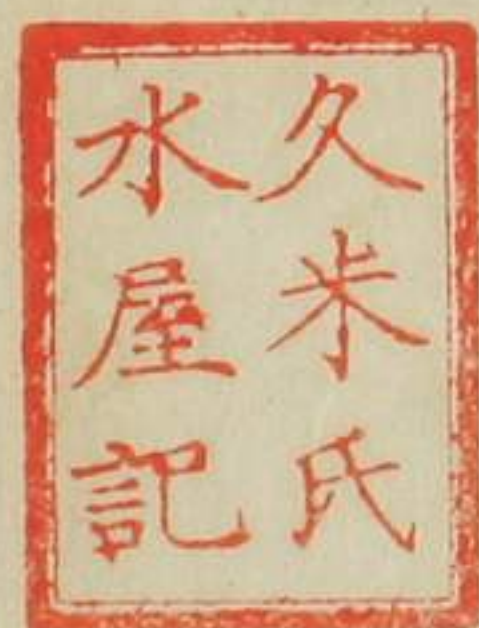 久米氏
水屋記